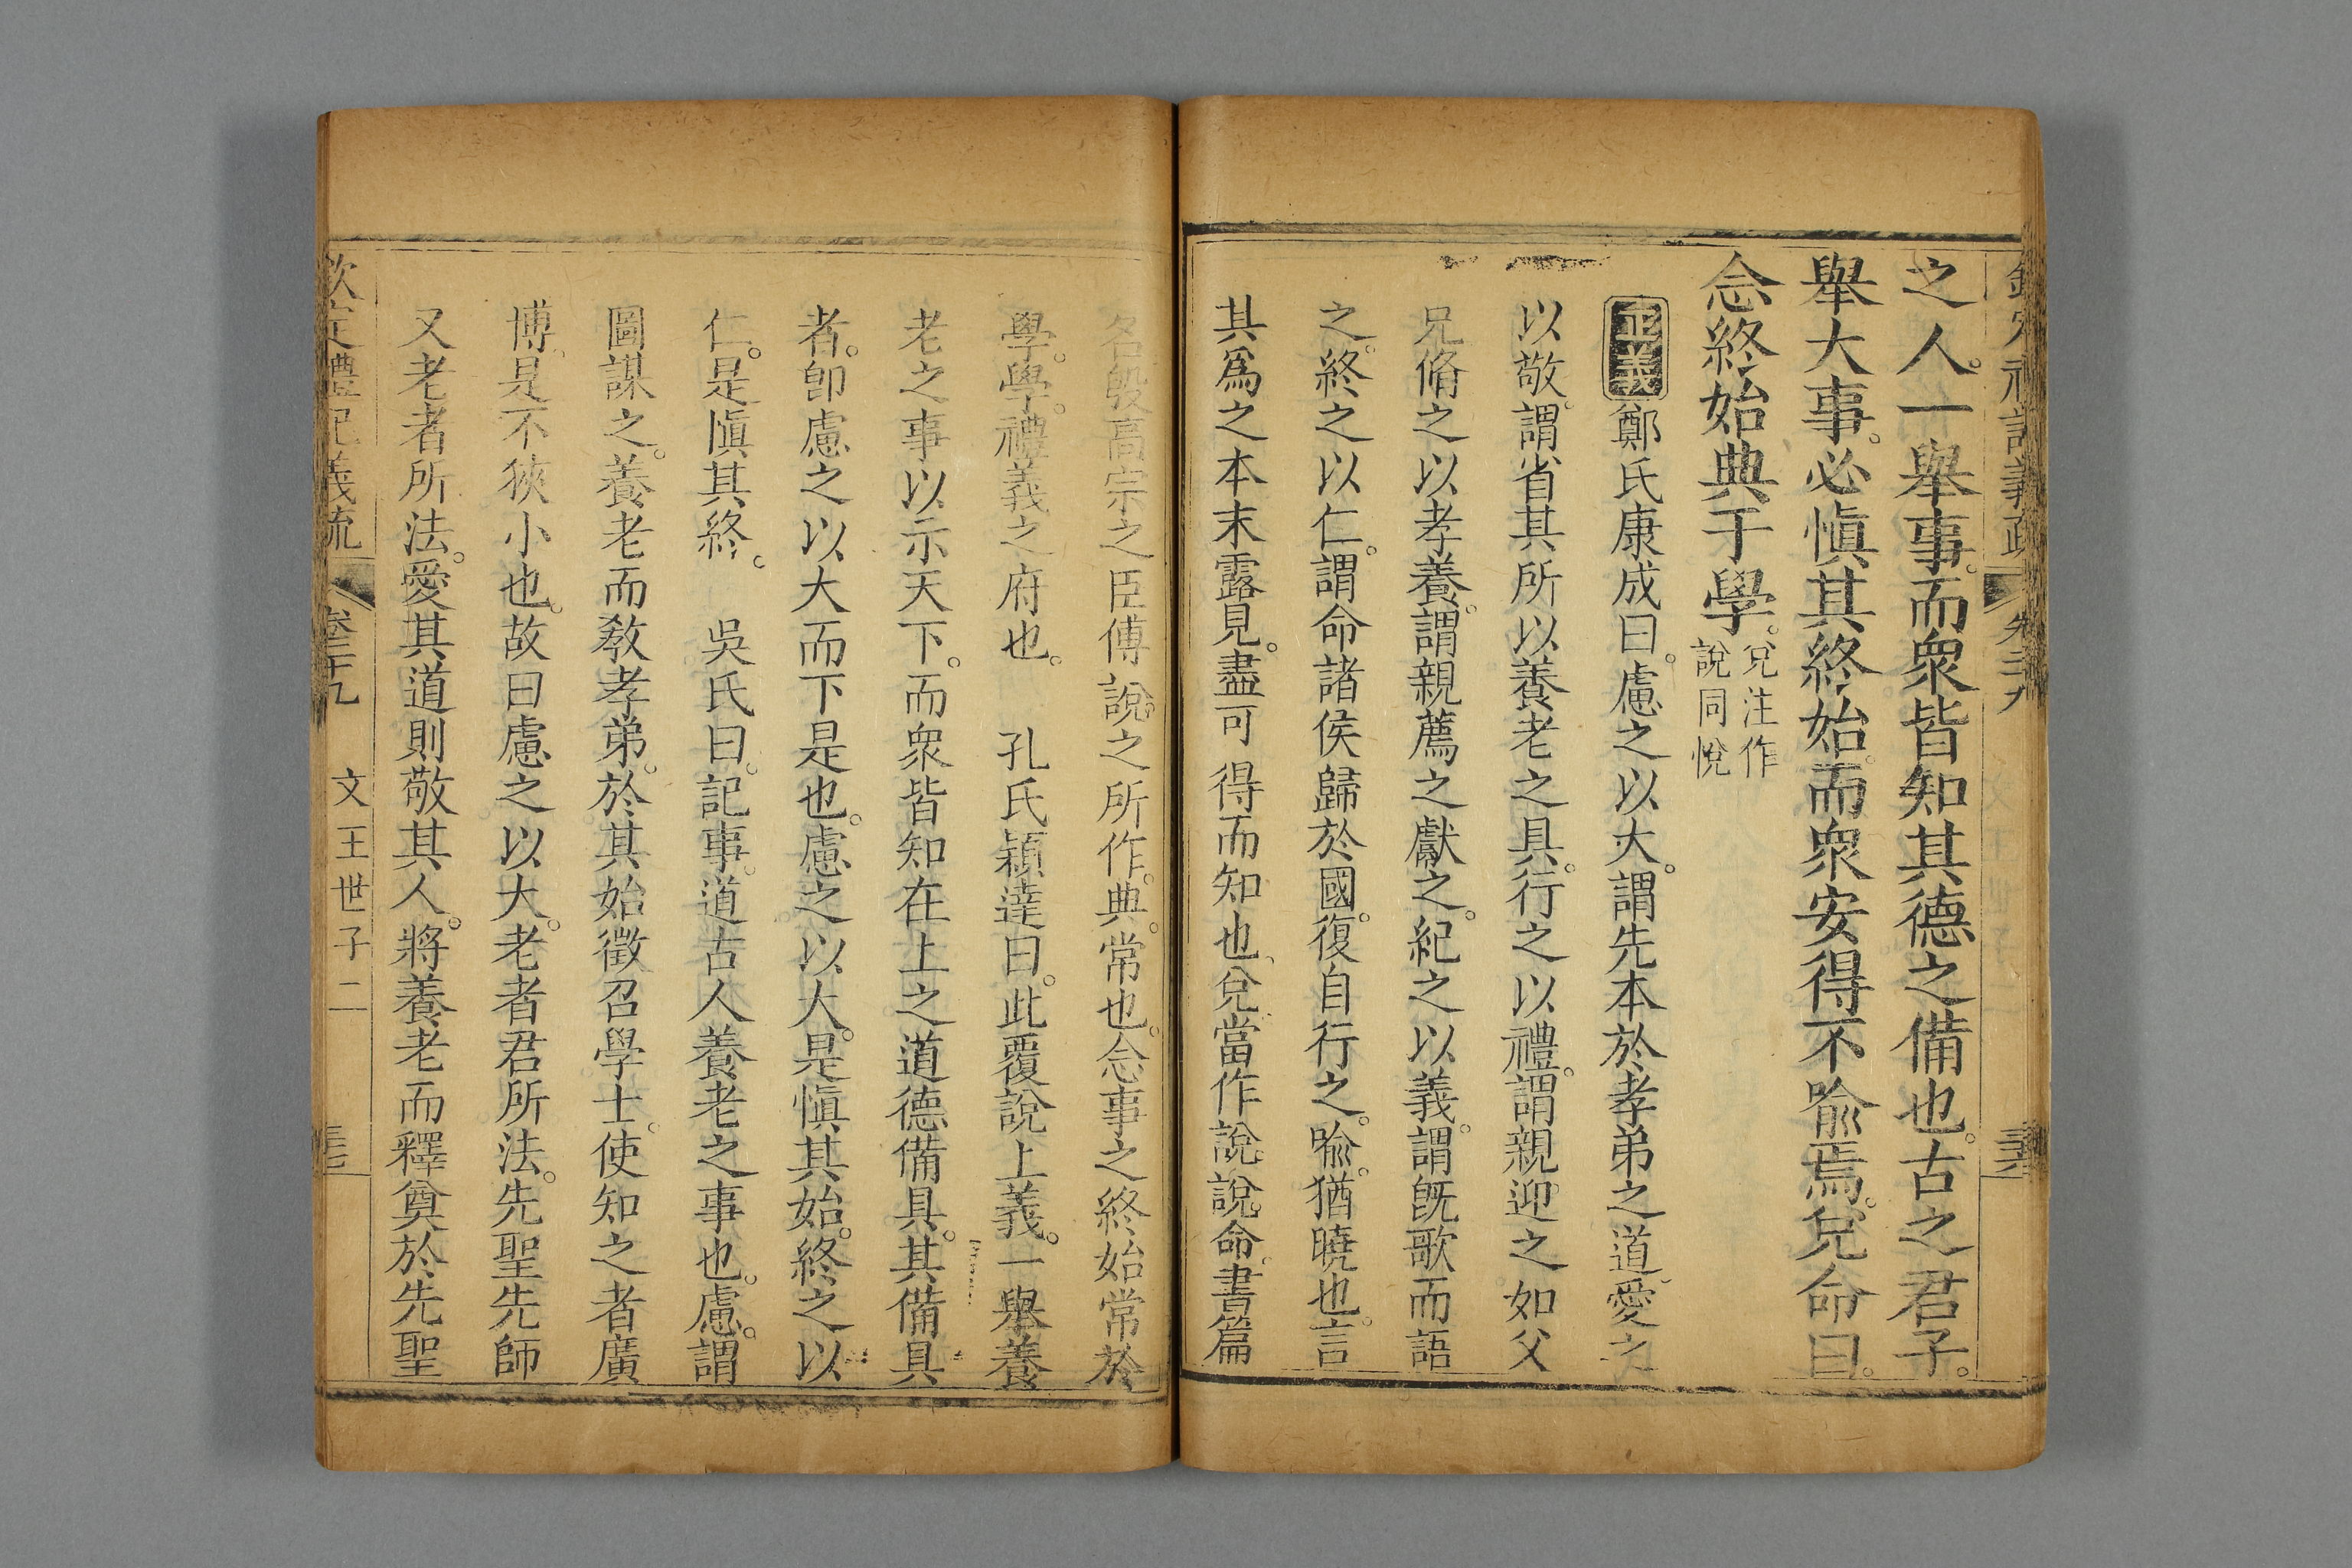 之人。一舉事。而衆皆知其德之備也。古之君子。
舉大事。必愼其終始。而衆安得不喩焉。兌命曰。
念終始典于學。兌注作
說同悅
正義鄭氏康成曰。慮之以大。謂先本於孝弟之道、愛之
以敬。謂省其所以養老之具。行之以禮。謂親迎之如父
兄脩之以孝養。謂親薦之獻之。紀之以義。謂旣歌而語
之。終之以仁。謂命諸侯歸於國。復自行之。喩。猶曉也。言
其爲之本末露見。盡可得而知也、兌當作說。說命。書篇
名殷高宗之臣傅說之所作。典。常也。念事之終始常於
學。學。禮義之府也。 孔氏穎達曰。此覆說上義。一舉養
老之事以示天下。而衆皆知在上之道德備具。其備具
者。卽慮之以大而下是也。慮之以大。是愼其始。終之以
仁。是愼其終。 吳氏曰。記事。道古人養老之事也。慮。謂
圖謀之。養老而敎孝弟。於其始徵召學士。使知之者廣
博、是不狹小也。故曰慮之以大。老者君所法。先聖先師
又老者所法。愛其道則敬其人。將養老而釋奠於先聖
欽定禮記義疏 卷二十九 文王世子二